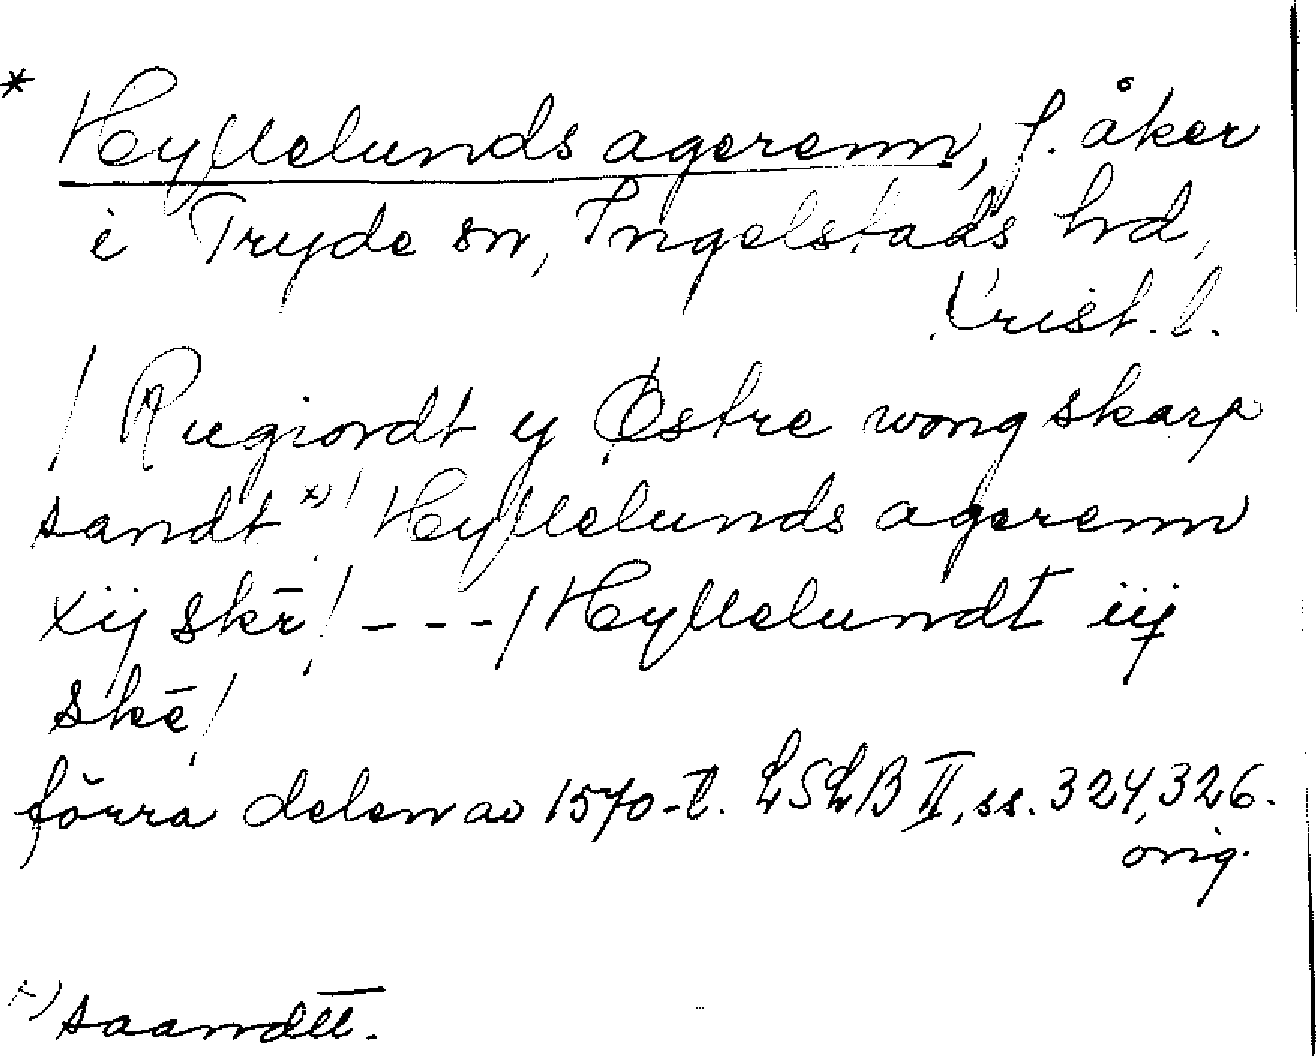 * Hyllelunds agerenn, f. åker
i Tryde sn, Ingelstads hd,
Krist. l.
/ Rugiordt y Østre wong skarp
sandt x) / Hyllelunds agerenn
xij skē / --- / Hyllelundt iij
skē /
förra delen av 1570-t. LSLB II, ss. 324, 326.
orig.
x) saandtt.